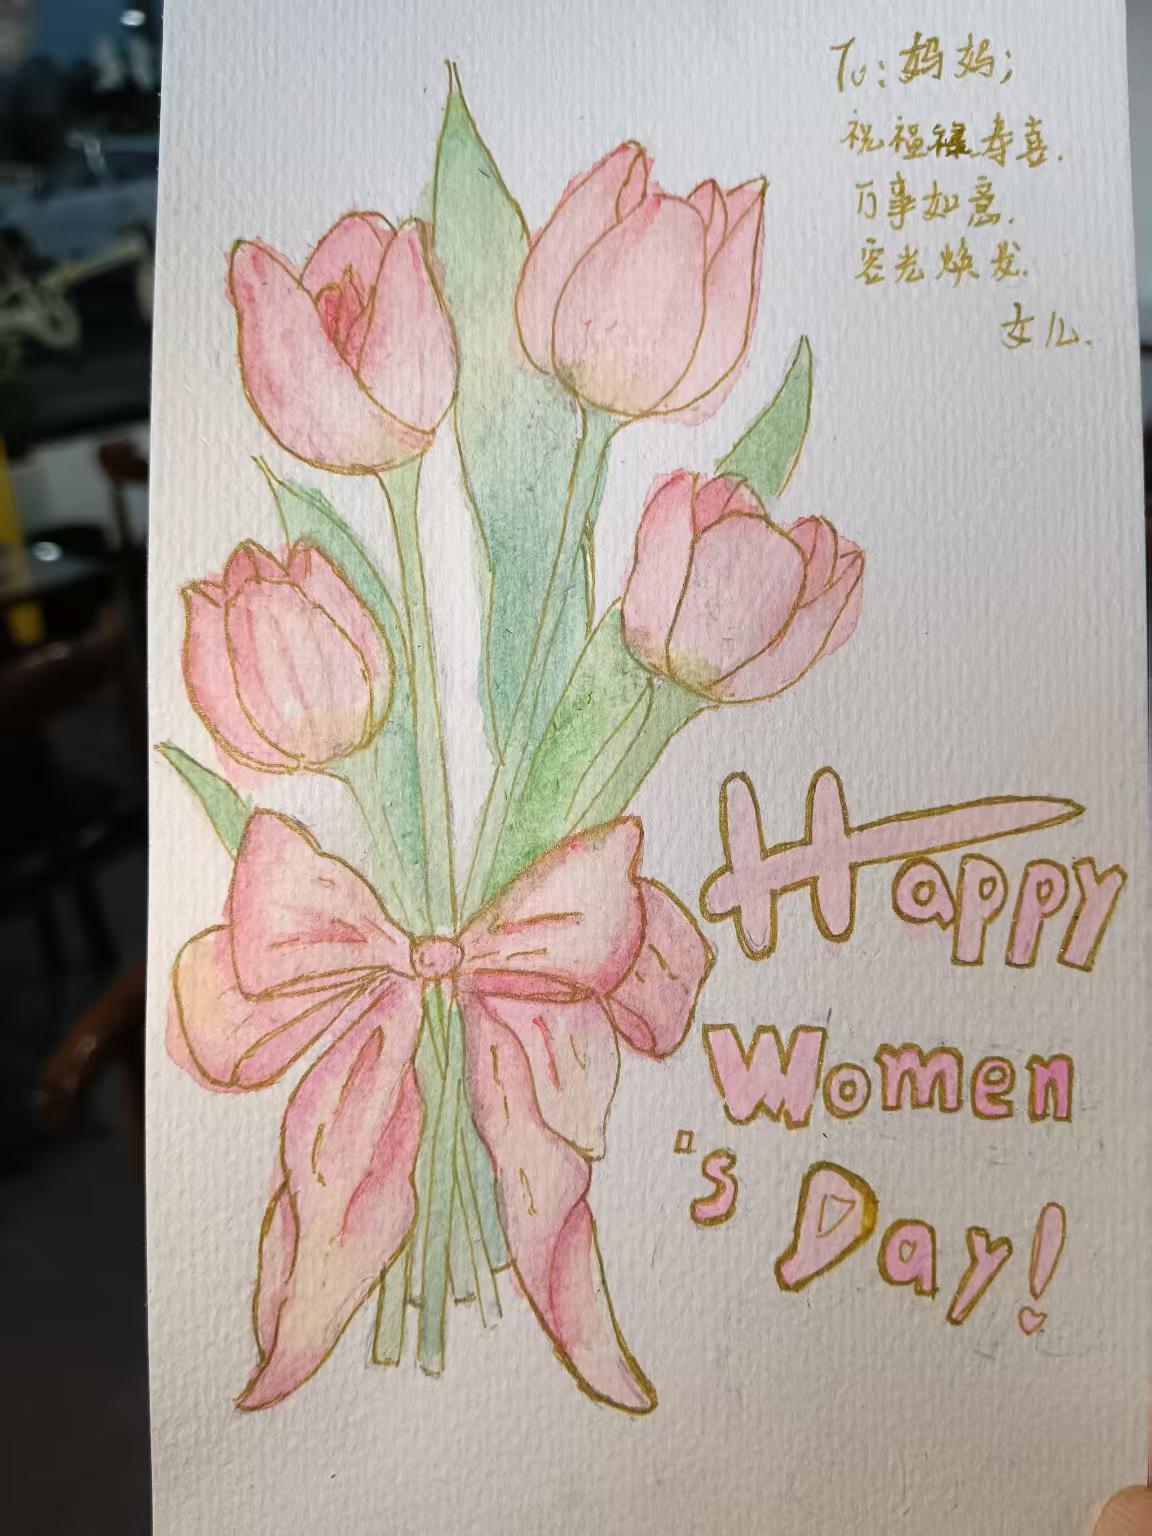 To：妈妈；
祝福禄寿喜.
万事如意.
容光焕发.
女儿.
Happy
Women
's Day!